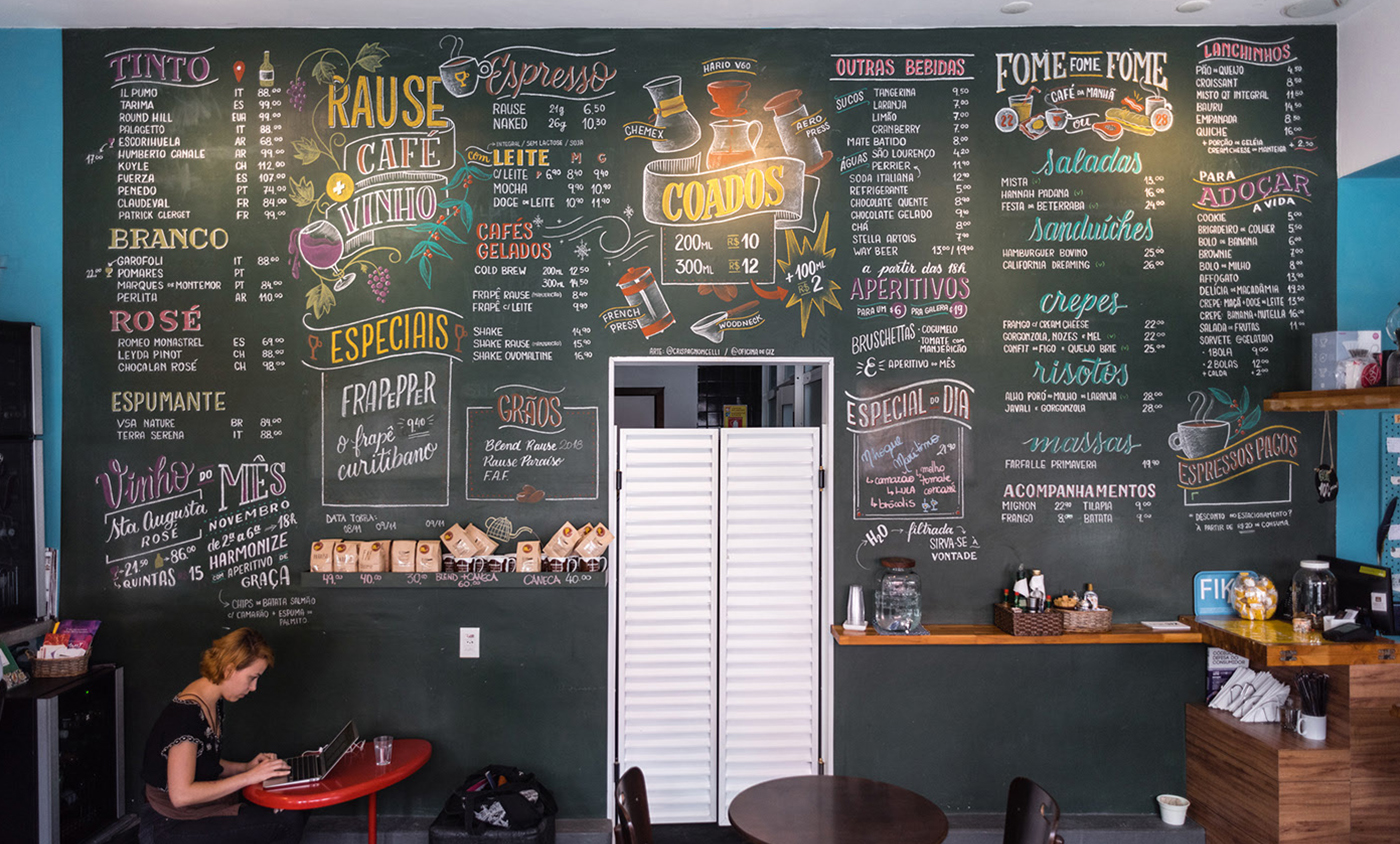 TINTO
IL PUMO IT 88,00
TARIMA ES 99,00
ROUND HILL EUA 99,00
PALAGETTO IT 88,00
ESCORIHUELA AR 68,00
HUMBERTO CANALE AR 99,00
KUYLE CH 112,00
FUERZA ES 107,00
PENEDO PT 74,00
CLAUDEVAL FR 84,00
PATRICK CLERGET FR 99,00
BRANCO
GAROFOLI IT 88,00
POMARES PT
MARQUES DE MONTEMOR PT 84,00
PERLITA AR 110,00
ROSÉ
ROMEO MONASTREL ES 69,00
LEYDA PINOT CH 88,00
CHOCALAN ROSÉ CH 98,00
ESPUMANTE
VSA NATURE BR 89,00
TERRA SERENA IT 88,00
Vinho DO MÊS
Sta Augusta
ROSÉ
21,50 86,00
QUINTAS 15
NOVEMBRO
de 2ª a 6ª 18h
HARMONIZE
COM APERITIVO DE
GRAÇA
CHIPS DE BATATA SALMÃO
C/ CAMARÃO + ESPUMA DE
PALMITO
RAUSE
CAFÉ
+
VINHO
ESPECIAIS
FRAPEPPER
9,40
o frapê
curitibano
Espresso
RAUSE 21g 6,50
NAKED 26g 10,30
+ INTEGRAL / SEM LACTOSE / SOJA
com LEITE M G
C/ LEITE P 6,90 8,40 9,40
MOCHA 9,90 10,90
DOCE DE LEITE 10,90 11,90
CAFÉS
GELADOS
COLD BREW 200ML 12,50
300ML 14,50
FRAPÊ RAUSE 8,90
FRAPÊ C/ LEITE 9,40
SHAKE 14,90
SHAKE RAUSE 15,90
SHAKE OVOMALTINE 16,90
GRÃOS
Blend Rause 2018
Rause Paraíso
F.A.F.
DATA TORRA:
08/11 09/11 09/11
49,00 40,00 30,00 BLEND + CANECA 60,00 CANECA 40,00
HARIO V60
CHEMEX
AERO
PRESS
COADOS
200ML R$ 10
300ML R$ 12
+100ML
R$ 2
FRENCH
PRESS
WOODNECK
ARTE: @CRISPAGNONCELLI / @OFICINA DE GIZ
OUTRAS BEBIDAS
SUCOS TANGERINA 9,50
LARANJA 7,00
LIMÃO 7,00
CRANBERRY 7,00
MATE BATIDO 8,00
ÁGUAS SÃO LOURENÇO 4,20
PERRIER 11,90
SODA ITALIANA 12,90
REFRIGERANTE 5,00
CHOCOLATE QUENTE 8,90
CHOCOLATE GELADO 9,90
CHÁ 8,00
STELLA ARTOIS 7,90
WAY BEER 13,00 / 19,00
a partir das 18h
APERITIVOS
PARA UM $6 PRA GALERA $19
BRUSCHETTAS • COGUMELO
• TOMATE COM
MANJERICÃO
É APERITIVO DO MÊS
ESPECIAL DO DIA
Nhoque
Marítimo 21,90
camarão
molho
tomate
LULA
concassé
brócolis
H₂O filtrada
SIRVA-SE À
VONTADE
FOME FOME FOME
CAFÉ DA MANHÃ
22 OU 23
saladas
MISTA 13,00
HANNAH PADANA 16,00
FESTA DE BETERRABA 24,00
sanduíches
HAMBURGER BOVINO 25,00
CALIFORNIA DREAMING 26,00
crepes
FRANGO C/ CREAM CHEESE 22,00
GORGONZOLA, NOZES + MEL 22,00
CONFIT DE FIGO + QUEIJO BRIE 25,00
risotos
ALHO PORÓ AO MOLHO DE LARANJA 28,00
JAVALI E GORGONZOLA 28,00
massas
FARFALLE PRIMAVERA 19,90
ACOMPANHAMENTOS
MIGNON 22,90 TILAPIA 9,00
FRANGO 8,90 BATATA 9,00
LANCHINHOS
PÃO DE QUEIJO 4,50
CROISSANT 8,50
MISTO QT INTEGRAL 11,50
BAURU 14,50
EMPANADA 8,50
QUICHE 16,00
+ PORÇÃO DE GELÉIA
CREAM CHEESE OU MANTEIGA + 2,50
PARA
ADOÇAR
A VIDA
COOKIE 5,00
BRIGADEIRO DE COLHER 5,50
BOLO DE BANANA 6,00
BROWNIE 7,00
BOLO DE MILHO 8,00
AFFOGATO 13,90
DELÍCIA DE MACADÂMIA 19,20
CREPE MAÇÃ + DOCE DE LEITE 13,50
CREPE BANANA + NUTELLA 16,00
SALADA DE FRUTAS 11,00
SORVETE @GELATAIO
• 1 BOLA 9,00
• 2 BOLAS 12,00
• CALDA + 2,00
ESPRESSOS PAGOS
* DESCONTO NO ESTACIONAMENTO?
À PARTIR DE R$20 DE CONSUMA
FIK
CÓDIGO
DEFESA DO
CONSUMIDOR